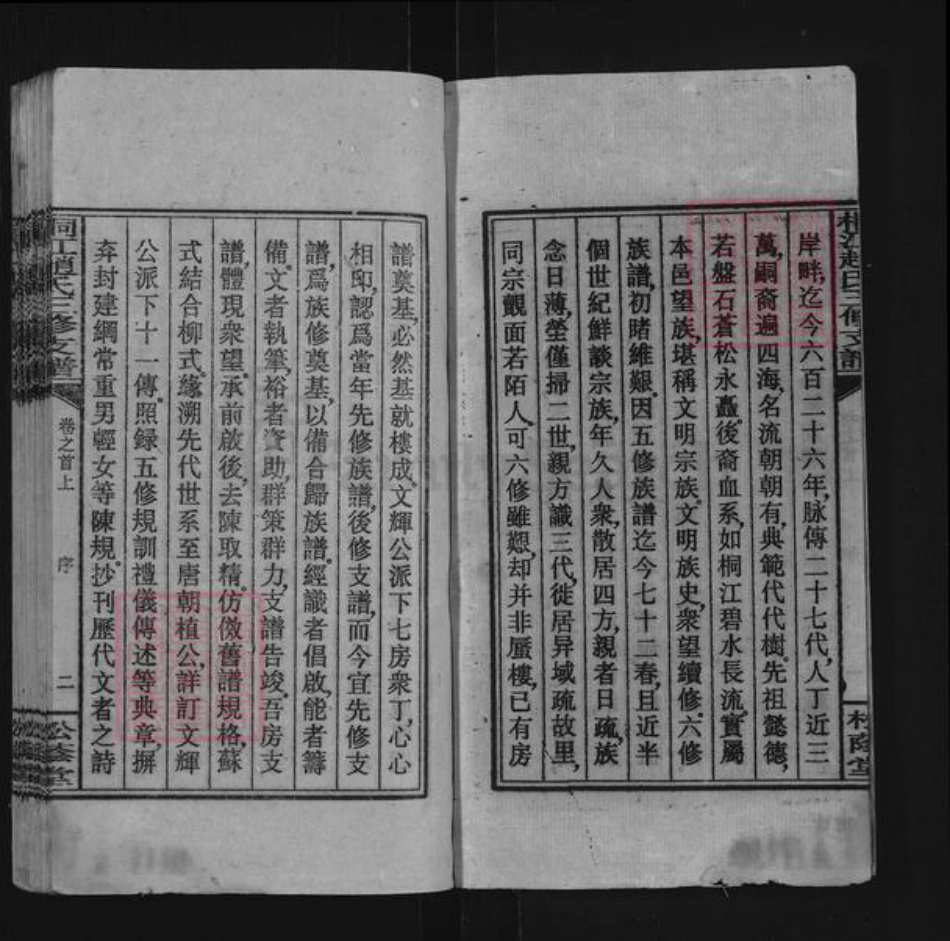 岸畔,迄今六百二十六年,脉傳二十七代,人丁近三
萬,嗣裔遍四海,名流朝朝有,典範代代樹。先祖懿德,
若盤石蒼松永矗,後裔血系,如桐江碧水長流,實屬
本邑望族,堪稱文明宗族。文明族史,衆望續修。六修
族譜,初睹維艱。因五修族譜迄今七十二春,且近半
個世紀鮮談宗族,年久人衆,散居四方,親者日疏,族
念日薄,塋僅掃二世,親方識三代,徙居异域疏故里,
同宗覿面若陌人。可六修雖艱,却并非蜃樓,已有房
譜奠基,必然基就樓成。文輝公派下七房衆丁,心心
相印,認爲當年先修族譜,後修支譜,而今宜先修支
譜,爲族修奠基,以備合歸族譜。經識者倡啟,能者籌
備。文者執筆,裕者資助,群策群力,支譜告竣。吾房支
譜,體現衆望。承前啟後,去陳取精。仿傚舊譜規格,蘇
式結合柳式。緣溯先代世系至唐朝植公,詳訂文輝
公派下十一傳。照録五修規訓禮儀傳述等典章,摒
弃封建綱常重男輕女等陳規。抄刊歷代文者之詩
桐江趙氏三修支譜
卷之首上
序
二